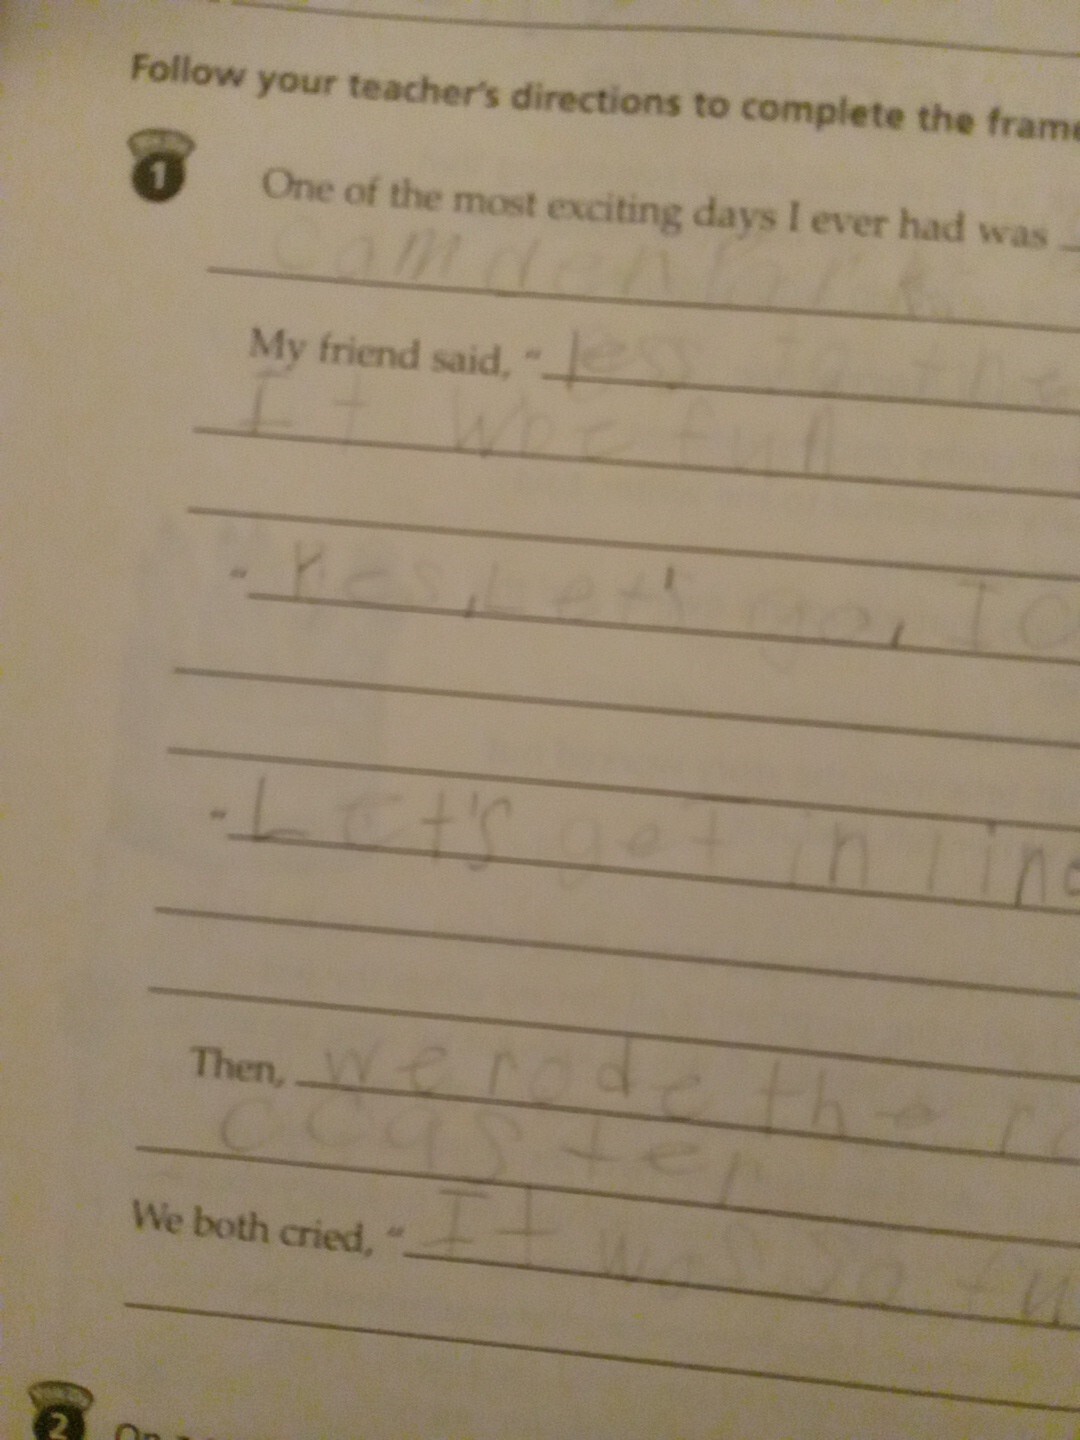 Follow your teacher's directions to complete the frame
1 One of the most exciting days I ever had was
Camden
My friend said, "less to the
It wbe fun
"Yes, Let's go, I
"Let's get in line
Then, we rode the
coaster
We both cried, "It was so fu
2